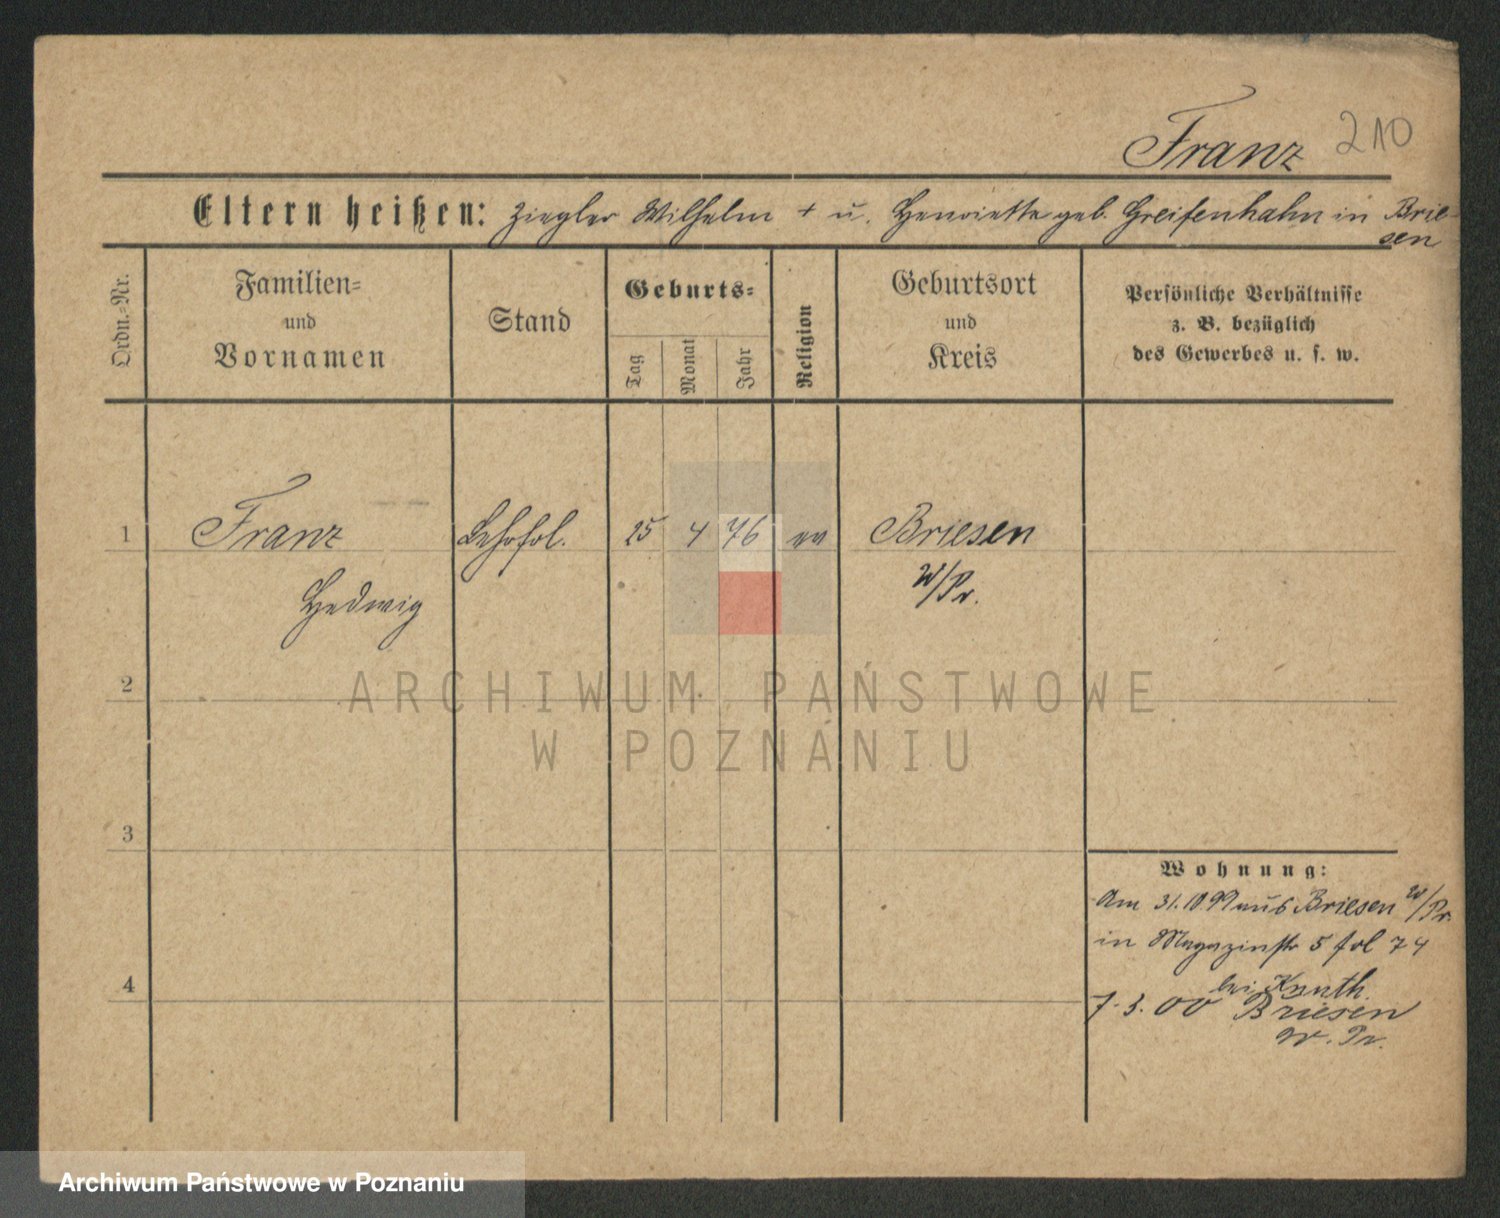 Franz 210
Eltern heißen: Ziegler Wilhelm + u. Henriette geb. Greifenhahn in Brie-
sen
Ordn.-Nr.
Familien-
und
Vornamen
Stand
Geburts-
Tag
Monat
Jahr
Religion
Geburtsort
und
Kreis
Persönliche Verhältnisse
z. B. bezüglich
des Gewerbes u. s. w.
1 Franz 25 4 76 ev Briesen
Hedwig W/Pr.
2
ARCHIWUM PAŃSTWOWE
W POZNANIU
3
4
Wohnung:
Am 31.10.99 aus Briesen W/Pr.
in Magazinstr 5 fol 74
bei Knuth.
7.3.00 Briesen
W. Pr.
Archiwum Państwowe w Poznaniu